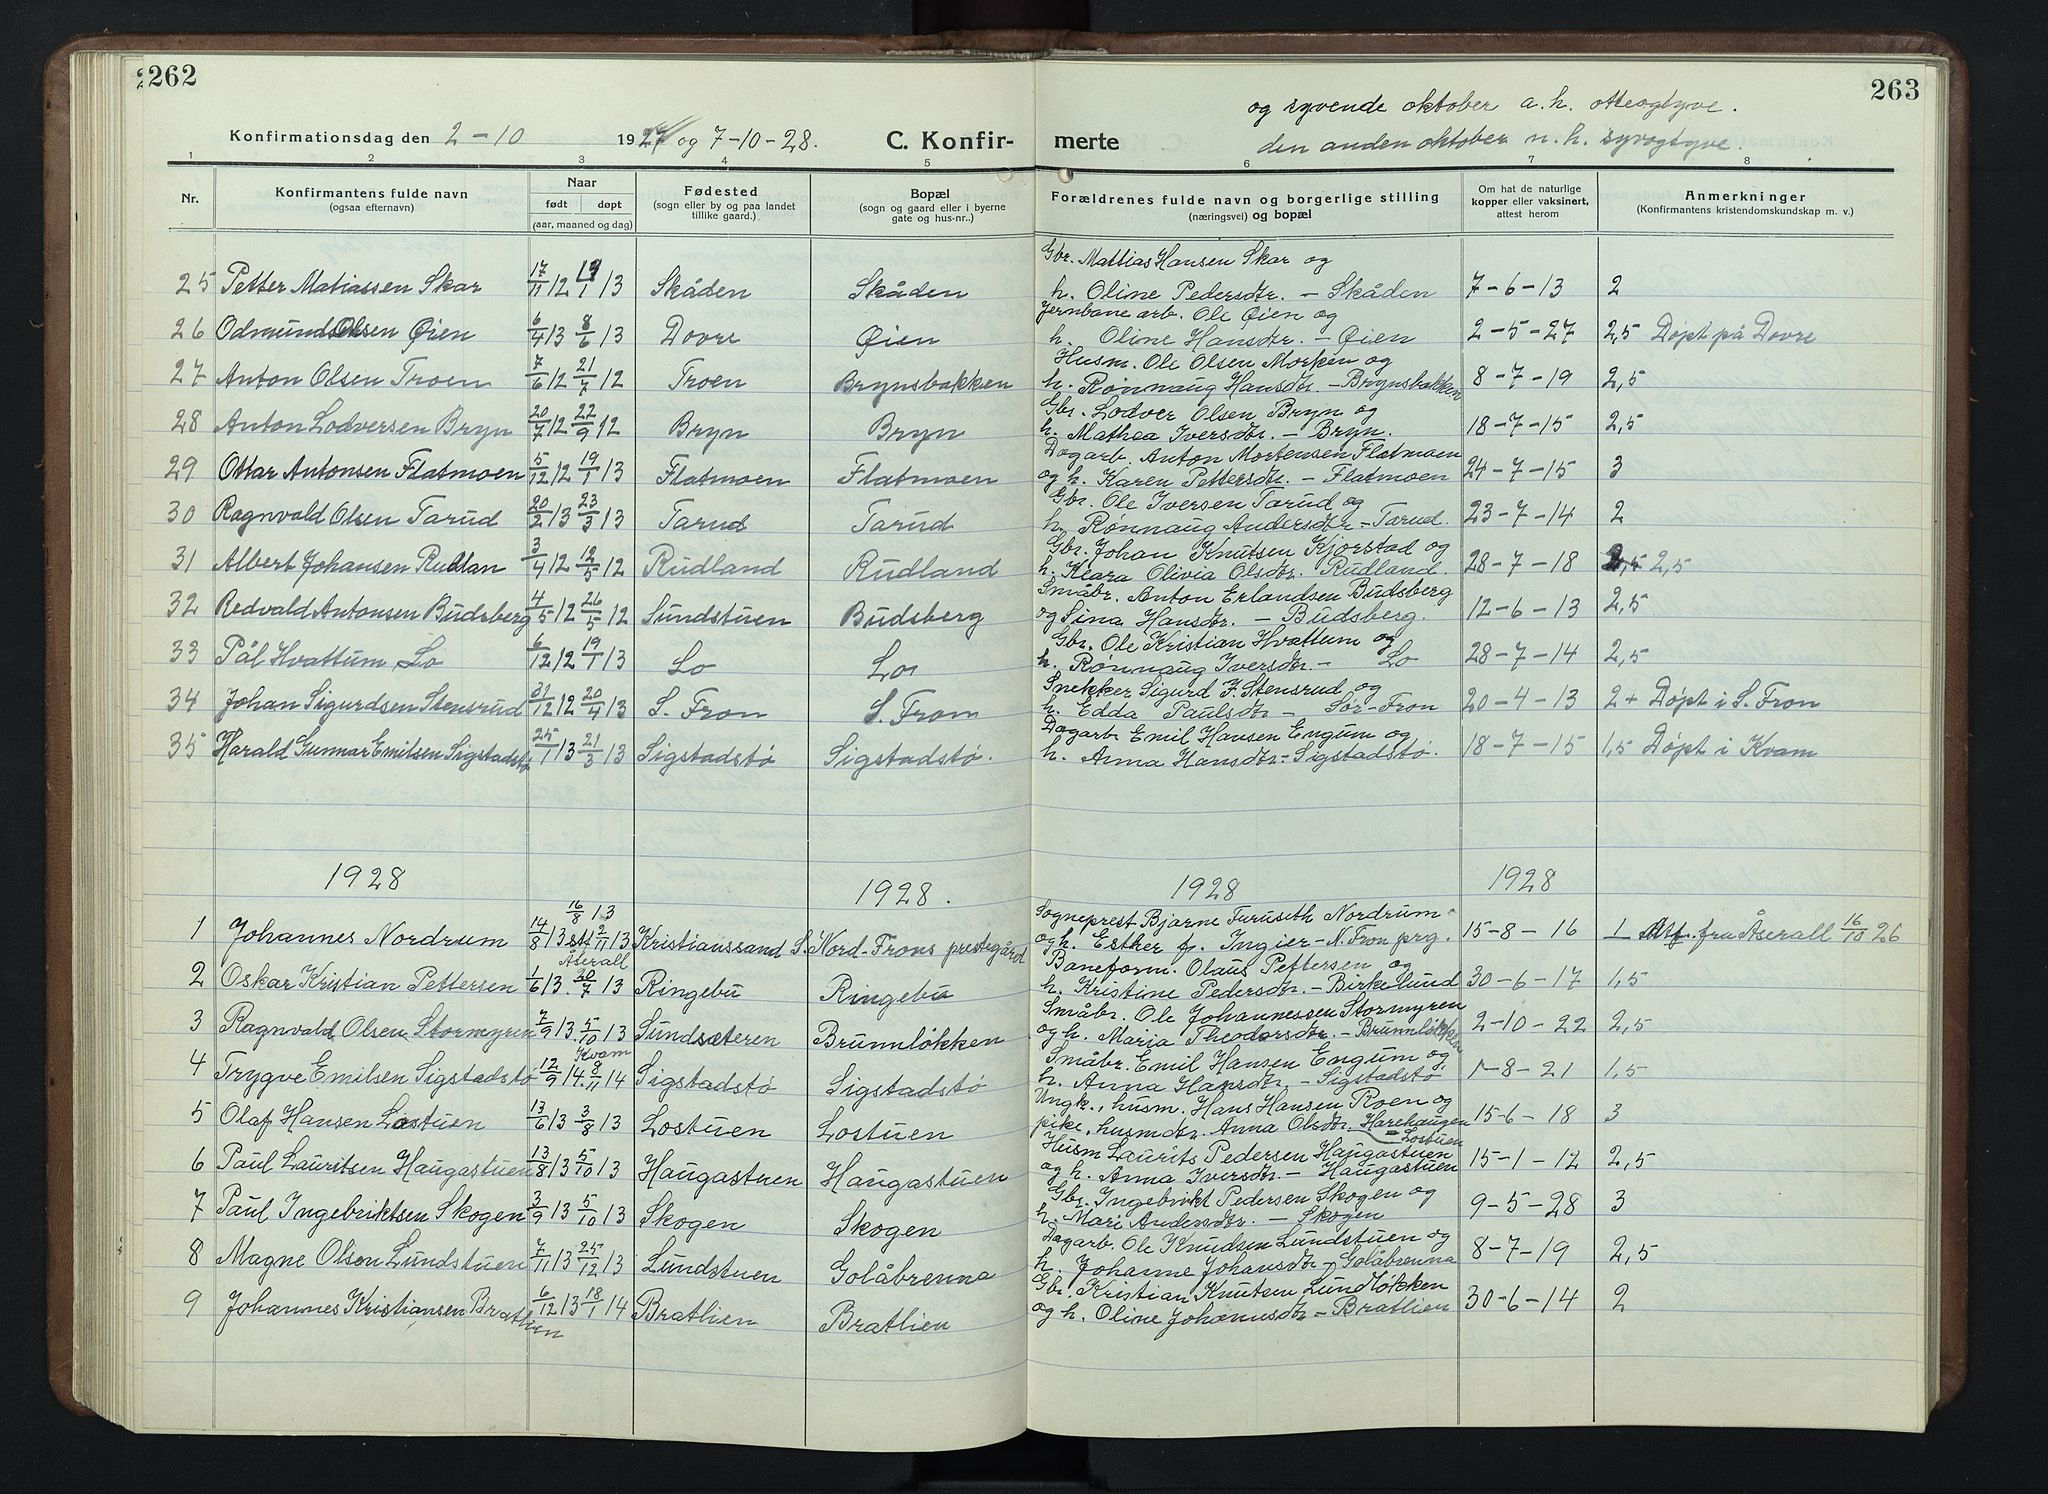 262
263
og syvende oktober a. h. otteogtyve.
Konfirmationsdag den 2-10 1927 og 7-10-28. C. Konfir- merte den anden oktober n. h. syvogtyve.
1 2 3 4 5 6 7 8
Nr. Konfirmantens fulde navn (ogsaa efternavn) Naar født døpt (aar, maaned og dag) Fødested (sogn eller by og paa landet tillike gaard.) Bopæl (sogn og gaard eller i byerne gate og hus-nr..) Forældrenes fulde navn og borgerlige stilling (næringsvei) og bopæl Om hat de naturlige kopper eller vaksinert, attest herom Anmerkninger (Konfirmantens kristendomskundskap m. v.)
Gbr. Mattias Hansen Skar og
25 Petter Matiassen Skar 17/11 12 19/1 13 Skåden Skåden h. Oline Pedersdtr. - Skåden 7-6-13 2
Jernbanearb. Ole Øien og
26 Odmund Olsen Øien 6/4 13 8/6 13 Dovre Øien h. Oline Hansdtr. - Øien 2-5-27 2,5 Døpt på Dovre
Husm. Ole Olsen Morken og
27 Anton Olsen Troen 7/6 12 21/7 12 Troen Brynsbakken h. Rønnaug Hansdtr. - Brynsbakken 8-7-19 2,5
Gbr. Lodver Olsen Bryn og
28 Anton Lodversen Bryn 20/7 12 22/9 12 Bryn Bryn h. Mathea Iversdtr. - Bryn. 18-7-15 2,5
Dagarb. Anton Mortensen Flatmoen
29 Ottar Antonsen Flatmoen 5/12 12 19/1 13 Flatmoen Flatmoen og h. Karen Pettersdtr. - Flatmoen 24-7-15 3
Gbr. Ole Iversen Tarud og
30 Ragnvald Olsen Tarud 20/2 13 23/3 13 Tarud Tarud h. Rønnaug Andersdtr - Tarud. 23-7-14 2
Gbr. Johan Knutsen Kjorstad og
31 Albert Johansen Rudlan 3/4 12 12/5 12 Rudland Rudland h. Klara Olivia Olsdtr. Rudland. 28-7-18 2,5
Småbr. Anton Erlandsen Budsberg
32 Redvald Antonsen Budsberg 4/5 12 26/5 12 Sundstuen Budsberg og Sina Hansdtr. - Budsberg. 12-6-13 2,5
Gbr. Ole Kristian Hvattum og
33 Pål Hvattum Lo 6/12 12 19/1 13 Lo Lo h. Rønnaug Iversdtr. - Lo 28-7-14 2,5
Snekker Sigurd J. Stensrud og
34 Johan Sigurdsen Stensrud 31/12 12 20/4 13 S. Fron S. Fron h. Edda Paulsdtr - Sør-Fron 20-4-13 2+ Døpt i S. Fron
Dagarb. Emil Hansen Engum og
35 Harald Gunnar Emilsen Sigstadstø 25/1 13 21/3 13 Sigstadstø Sigstadstø. h. Anna Hansdtr - Sigstadstø. 18-7-15 1,5 Døpt i Kvam
1928 1928. 1928 1928
16/8 13
Sogneprest Bjarne Furuseth Nordrum
1 Johannes Nordrum 14/8 13 stf 2/11 13 Kristianssand S. Nord-Frons prestegård og h. Esther f. Ingier - N. Fron prg. 15-8-16 1 Att. fra Åserall 16/10 26
Åserall
Baneform. Olaus Pettersen og
2 Oskar Kristian Pettersen 1/6 13. 20/7 13 Ringebu Ringebu h. Kristine Pedersdtr. - Birkelund 30-6-17 1,5
Småbr. Ole Johannessen Stormyren
3 Ragnvald Olsen Stormyren 7/9 13 5/10 13 Sundsæteren Brunnløkken og h. Maria Theodorsdtr. - Brunnløkken 2-10-22 2,5
Kvam
Småbr. Emil Hansen Engum og
4 Trygve Emilsen Sigstadstø 12/9 14. 8/11 14 Sigstadstø Sigstadstø h. Anna Hansdtr. - Sigstadstø 1-8-21 1,5
Ungk., husm. Hans Hansen Roen og
5 Olaf Hansen Lostuen 13/6 13 3/8 13 Lostuen Lostuen pike, husmdtr. Anna Olsdtr. Harehaugen 15-6-18 3
= Lostuen
Husm Laurits Pedersen Haugastuen
6 Paul Lauritsen Haugastuen 13/8 13 5/10 13 Haugastuen Haugastuen og h. Anna Iversdtr. - Haugastuen 15-1-12 2,5
Gbr. Ingebrikt Pedersen Skogen og
7 Paul Ingebriktsen Skogen 3/9 13 5/10 13 Skogen Skogen h. Mari Andersdtr. - Skogen 9-5-28 3
Dagarb. Ole Knudsen Lundstuen og
8 Magne Olsen Lundstuen 7/11 13 25/12 13 Lundstuen Golåbrenna h. Johanne Johansdtr - Golåbrenna 8-7-19 2,5
Gbr. Kristian Knutsen Lundløkken
9 Johannes Kristiansen Bratlien 6/12 13 18/1 14 Bratlien Bratlien og h. Oline Johannsdtr - Bratlien 30-6-14 2